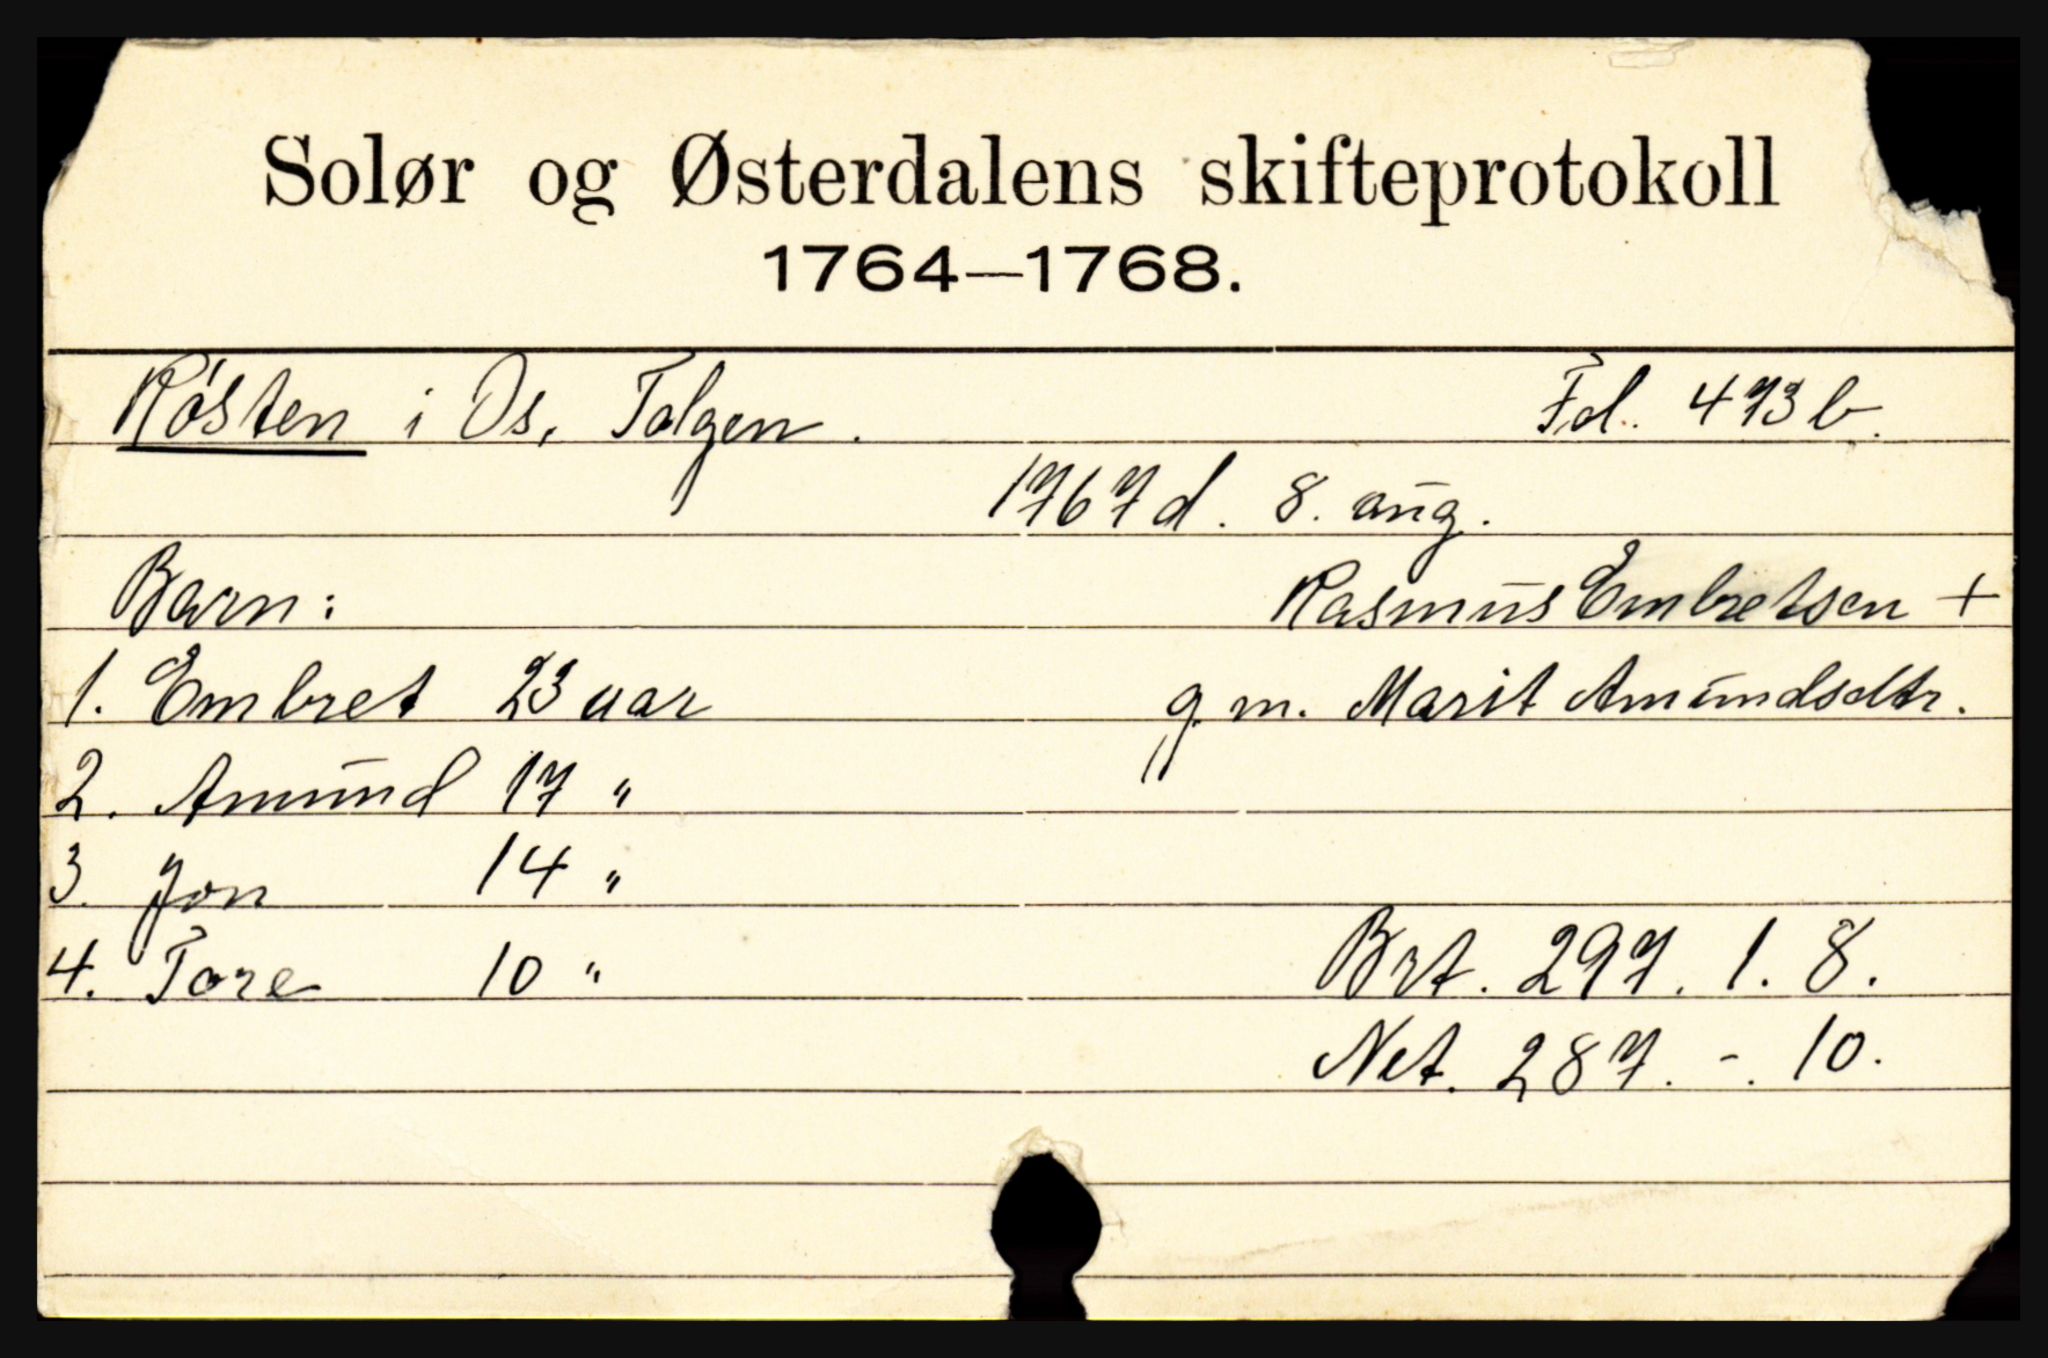 Solør og Østerdalens skifteprotokoll
1764—1768.
Røsten i Os, Tolgen. Fol. 473 b.
1767 d. 8. aug.
Barn: Rasmus Embretsen +
1. Embret 23 aar g. m. Marit Amundsdtr.
2. Amund 17 "
3. Jon 14 "
4. Tore 10 " Brt. 297. 1. 8.
Net. 287. -. 10.